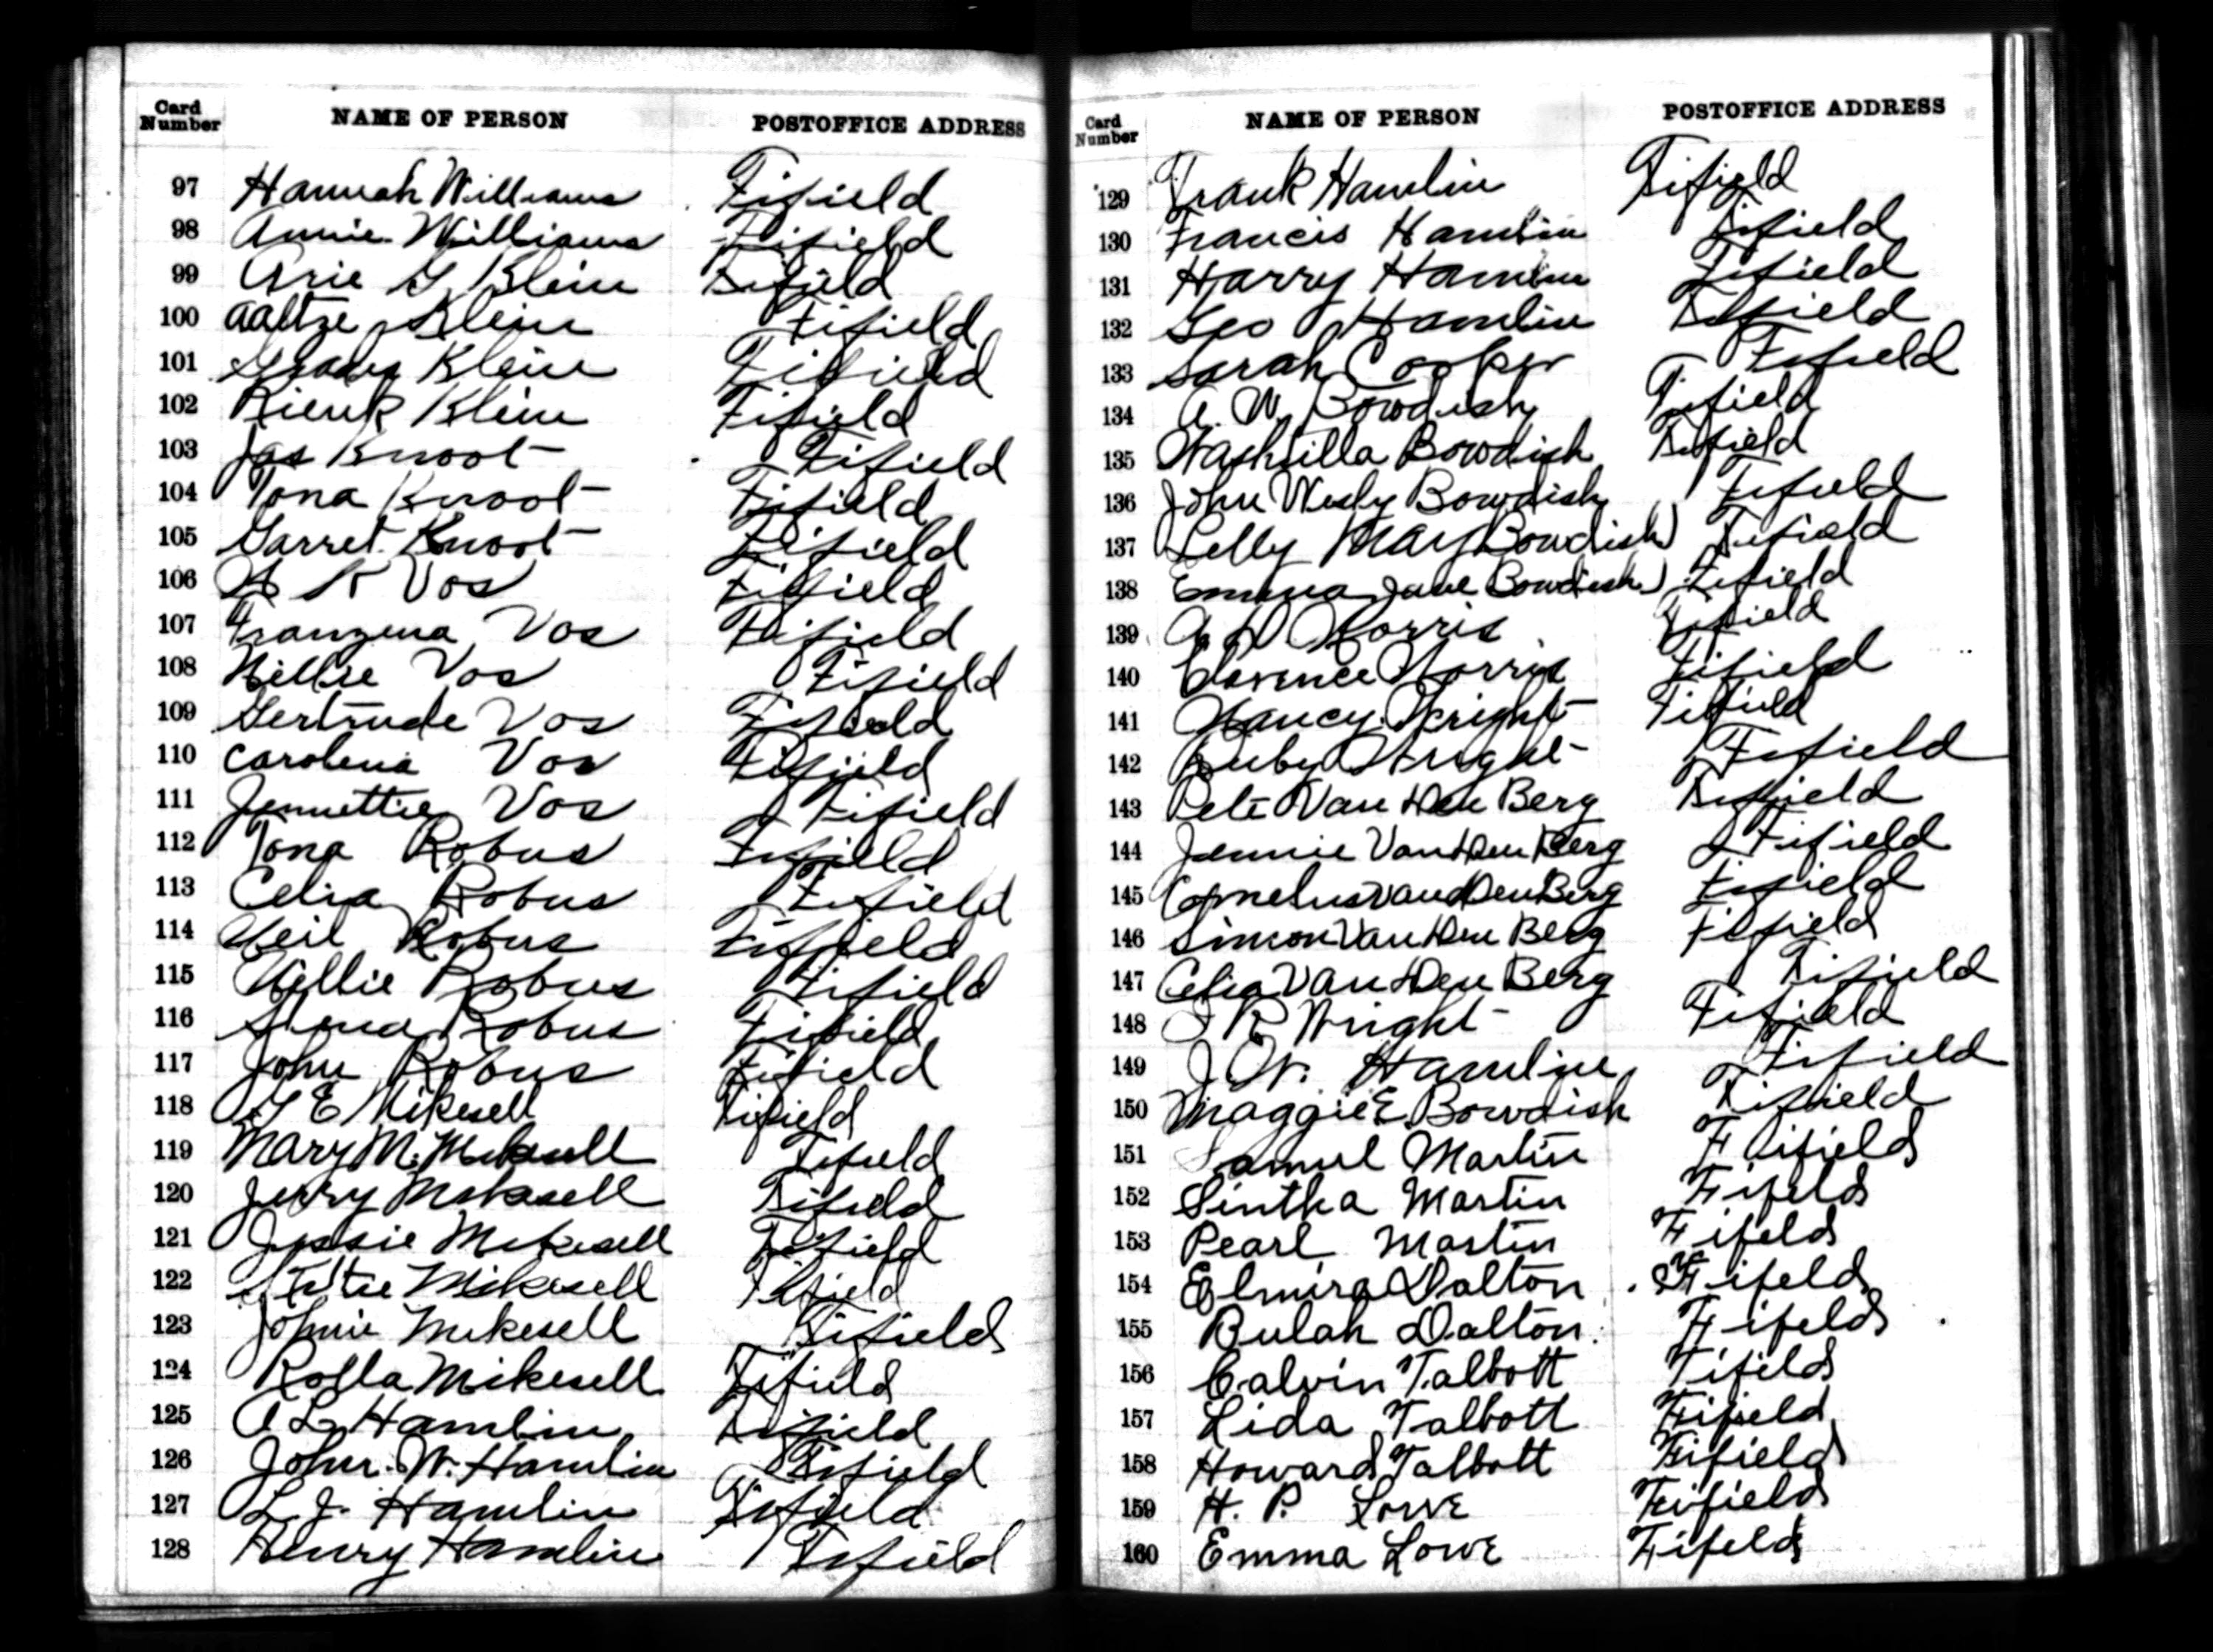 Card Number NAME OF PERSON POSTOFFICE ADDRESS
97 Hannah Williams Fifield
98 Annie Williams Fifield
99 Arie G Klein Fifield
100 Aaltze Klein Fifield
101 Grady Klein Fifield
102 Rienk Klein Fifield
103 Jas Knoot Fifield
104 Tona Knoot Fifield
105 Garret Knoot Fifield
106 K Vos Fifield
107 Franzena Vos Fifield
108 Nellie Vos Fifield
109 Gertrude Vos Fifield
110 Carolena Vos Fifield
111 Jennettie Vos Fifield
112 Tona Robus Fifield
113 Celia Robus Fifield
114 Neil Robus Fifield
115 Nellie Robus Fifield
116 Robus Fifield
117 John Robus Fifield
118 G E Mikesell Fifield
119 Mary M. Mikesell Fifield
120 Jerry Mikesell Fifield
121 Jessie Mikesell Fifield
122 Mikesell Fifield
123 Johnie Mikesell Fifield
124 Rolla Mikesell Fifield
125 A L Hamlin Fifield
126 John. W. Hamlin Fifield
127 L. J. Hamlin Fifield
128 Henry Hamlin Fifield
Card Number NAME OF PERSON POSTOFFICE ADDRESS
129 Frank Hamlin Fifield
130 Francis Hamlin Fifield
131 Harry Hamlin Fifield
132 Geo Hamlin Fifield
133 Sarah Cooper Fifield
134 A. W. Bowdish Fifield
135 Washtilla Bowdish Fifield
136 John Wesly Bowdish Fifield
137 Lelly May Bowdish Fifield
138 Emma Jane Bowdish Fifield
139 Norris Fifield
140 Clarence Norris Fifield
141 Nancy Wright Fifield
142 Ruby Wright Fifield
143 Pete Van Den Berg Fifield
144 Jennie Van Den Berg Fifield
145 Cornelius Van Den Berg Fifield
146 Simon Van Den Berg Fifield
147 Celia Van Den Berg Fifield
148 J R Wright Fifield
149 J. W. Hamline Fifield
150 Maggie E Bowdish Fifield
151 Samuel Martin Fifield
152 Sintha Martin Fifeld
153 Pearl Martin Fifeld
154 Elmira Dalton Fifeld
155 Bulah Dalton Fifeld
156 Calvin Talbott Fifeld
157 Lida Talbott Fifield
158 Howard Talbott Fifield
159 H. P. Lowe Fifield
160 Emma Lowe Fifeld